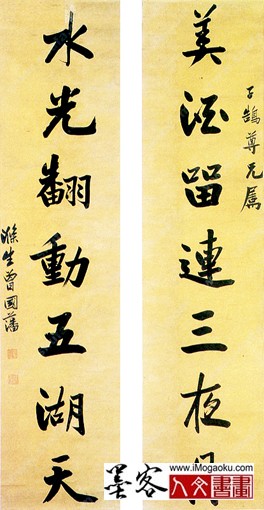 子鵠尊兄屬
美酒留連三夜月
水光翻動五湖天
滌生曾國藩
墨客
www.iMogaoku.com
人文書畫